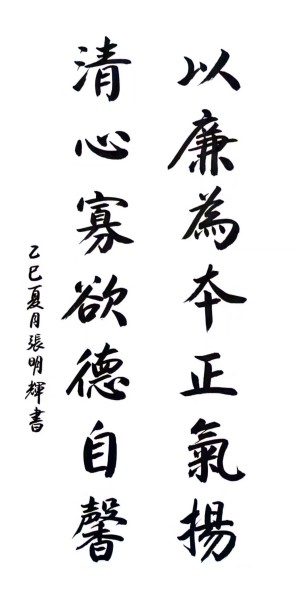 以廉為本正氣揚
清心寡欲德自馨
乙巳夏月張明輝書